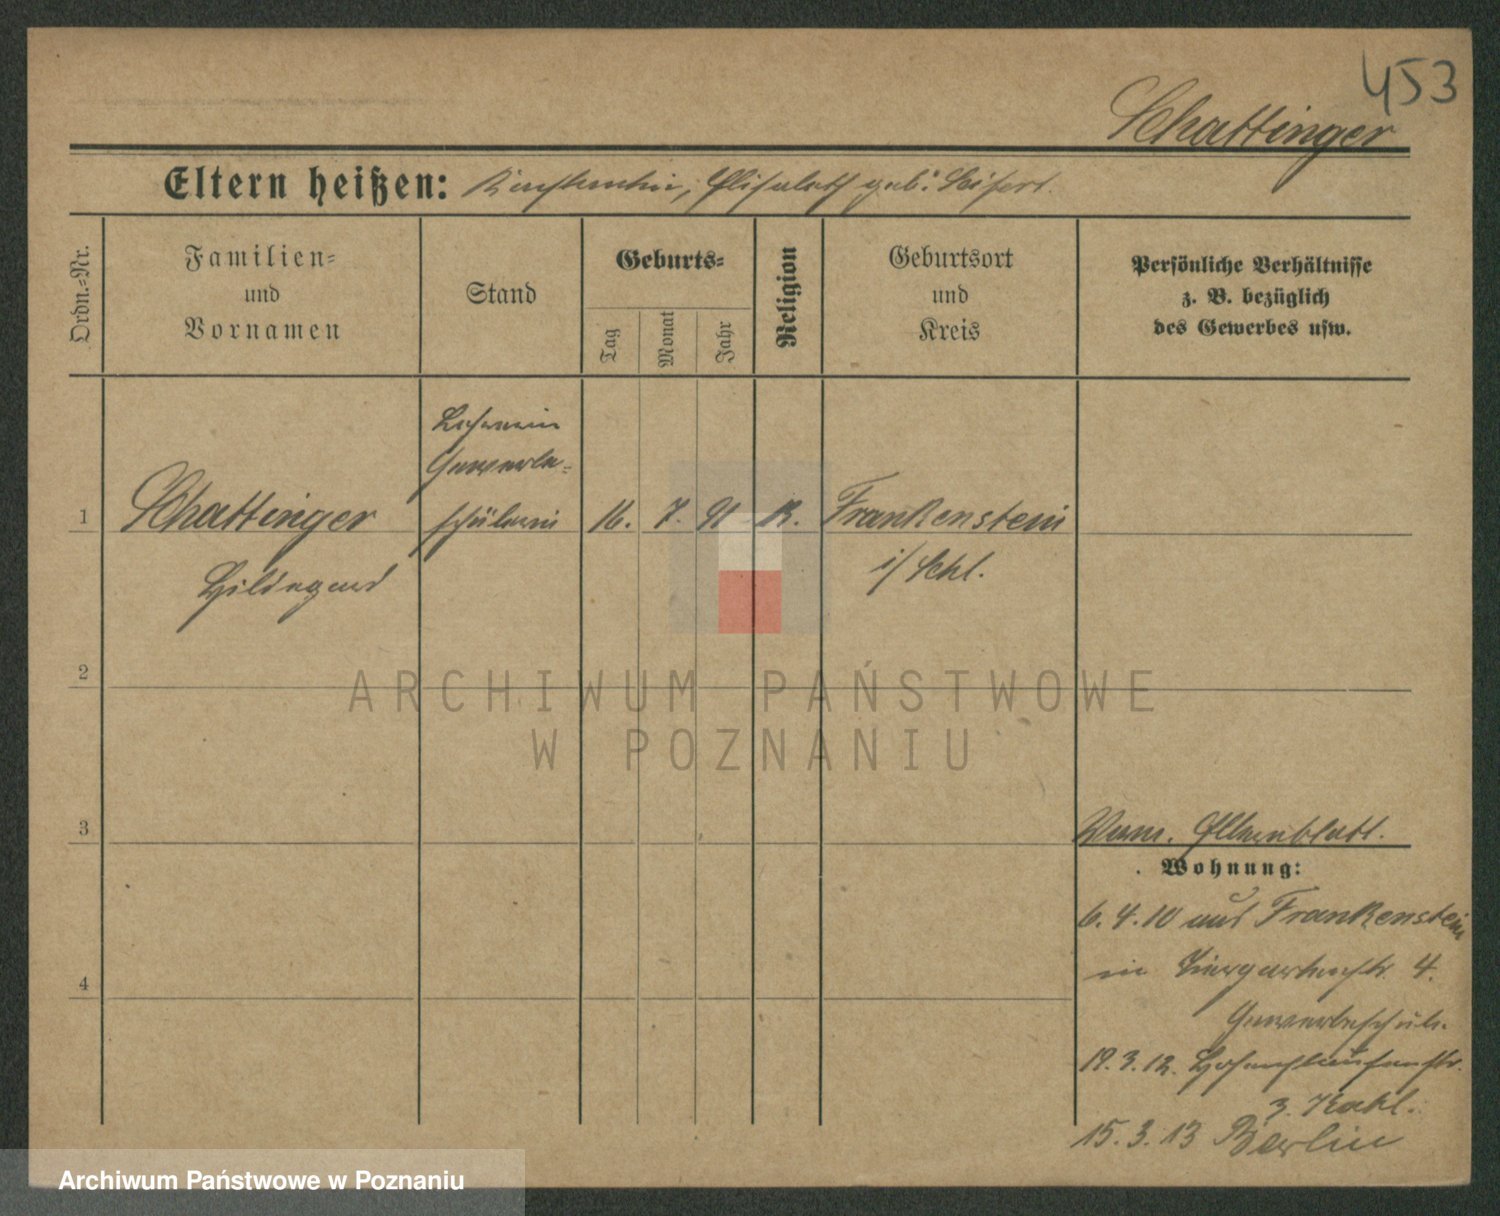 453
Schattinger
Eltern heißen: Konstantin, Elisabeth geb. Seifert.
Ordn.-Nr.
Familien-
und
Vornamen
Stand
Geburts-
Tag
Monat
Jahr
Religion
Geburtsort
und
Kreis
Persönliche Verhältnisse
z. B. bezüglich
des Gewerbes usw.
Lehrerin
Gewerbe-
1 Schattinger schülerin 16. 7. 91 K. Frankenstein
Hildegard i/Schl.
2
3
Verm. Elternblatt.
Wohnung:
6.4.10 aus Frankenstein
in Tiergartenstr. 4.
4
Gewerbeschule.
19.3.12. Hohenstaufenstr.
3. Kahl.
15.3.13 Berlin
ARCHIWUM PAŃSTWOWE
W POZNANIU
Archiwum Państwowe w Poznaniu